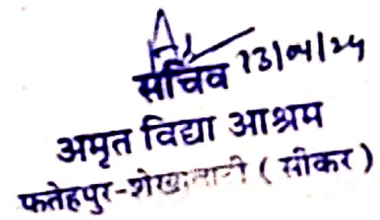 सचिव 13/04/24
अमृत विद्या आश्रम
फतेहपुर-शेखावाटी ( सीकर )